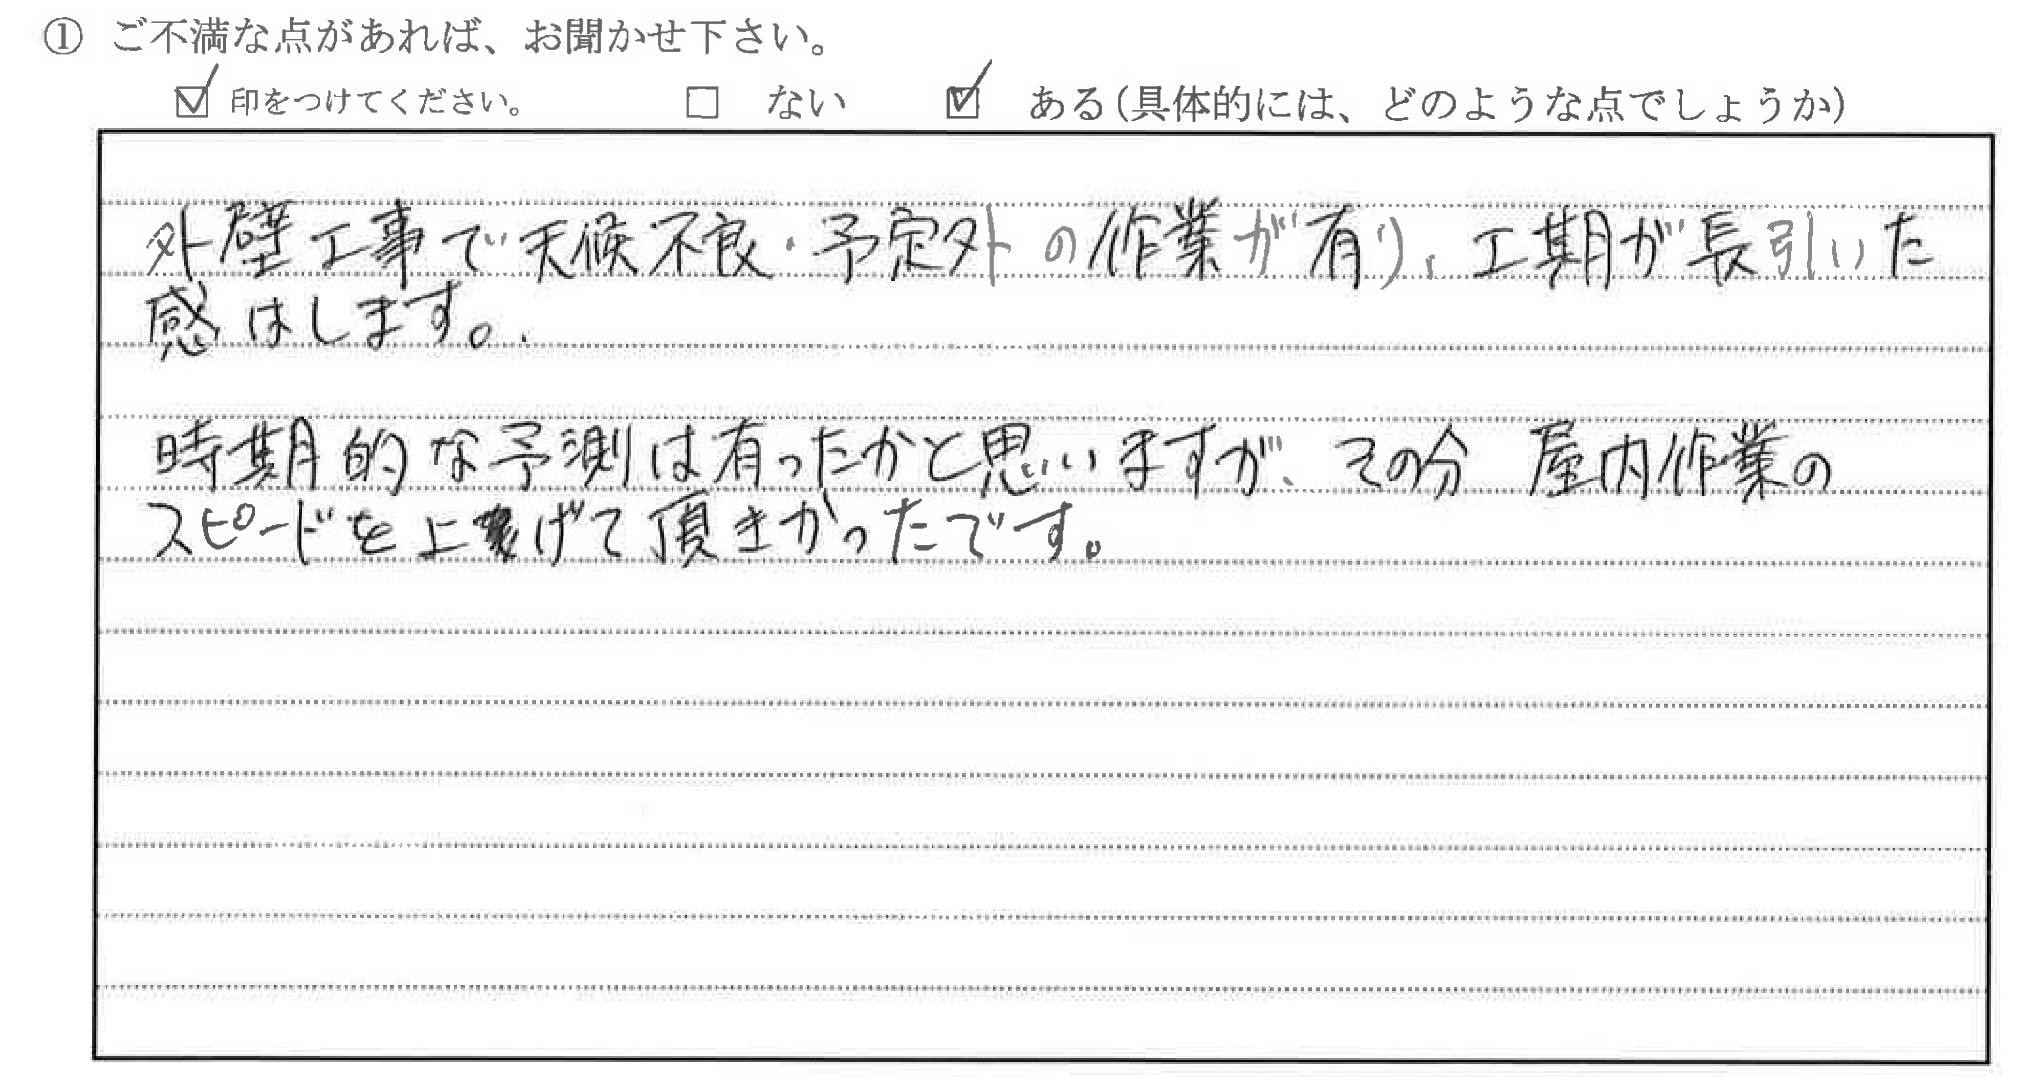 ① ご不満な点があれば、お聞かせ下さい。
☑ 印をつけてください。 □ ない ☑ ある(具体的には、どのような点でしょうか)
外壁工事で天候不良・予定外の作業が有り、工期が長引いた
感はします。
時期的な予測は有ったかと思いますが、その分 屋内作業の
スピードを上げて頂きかったです。